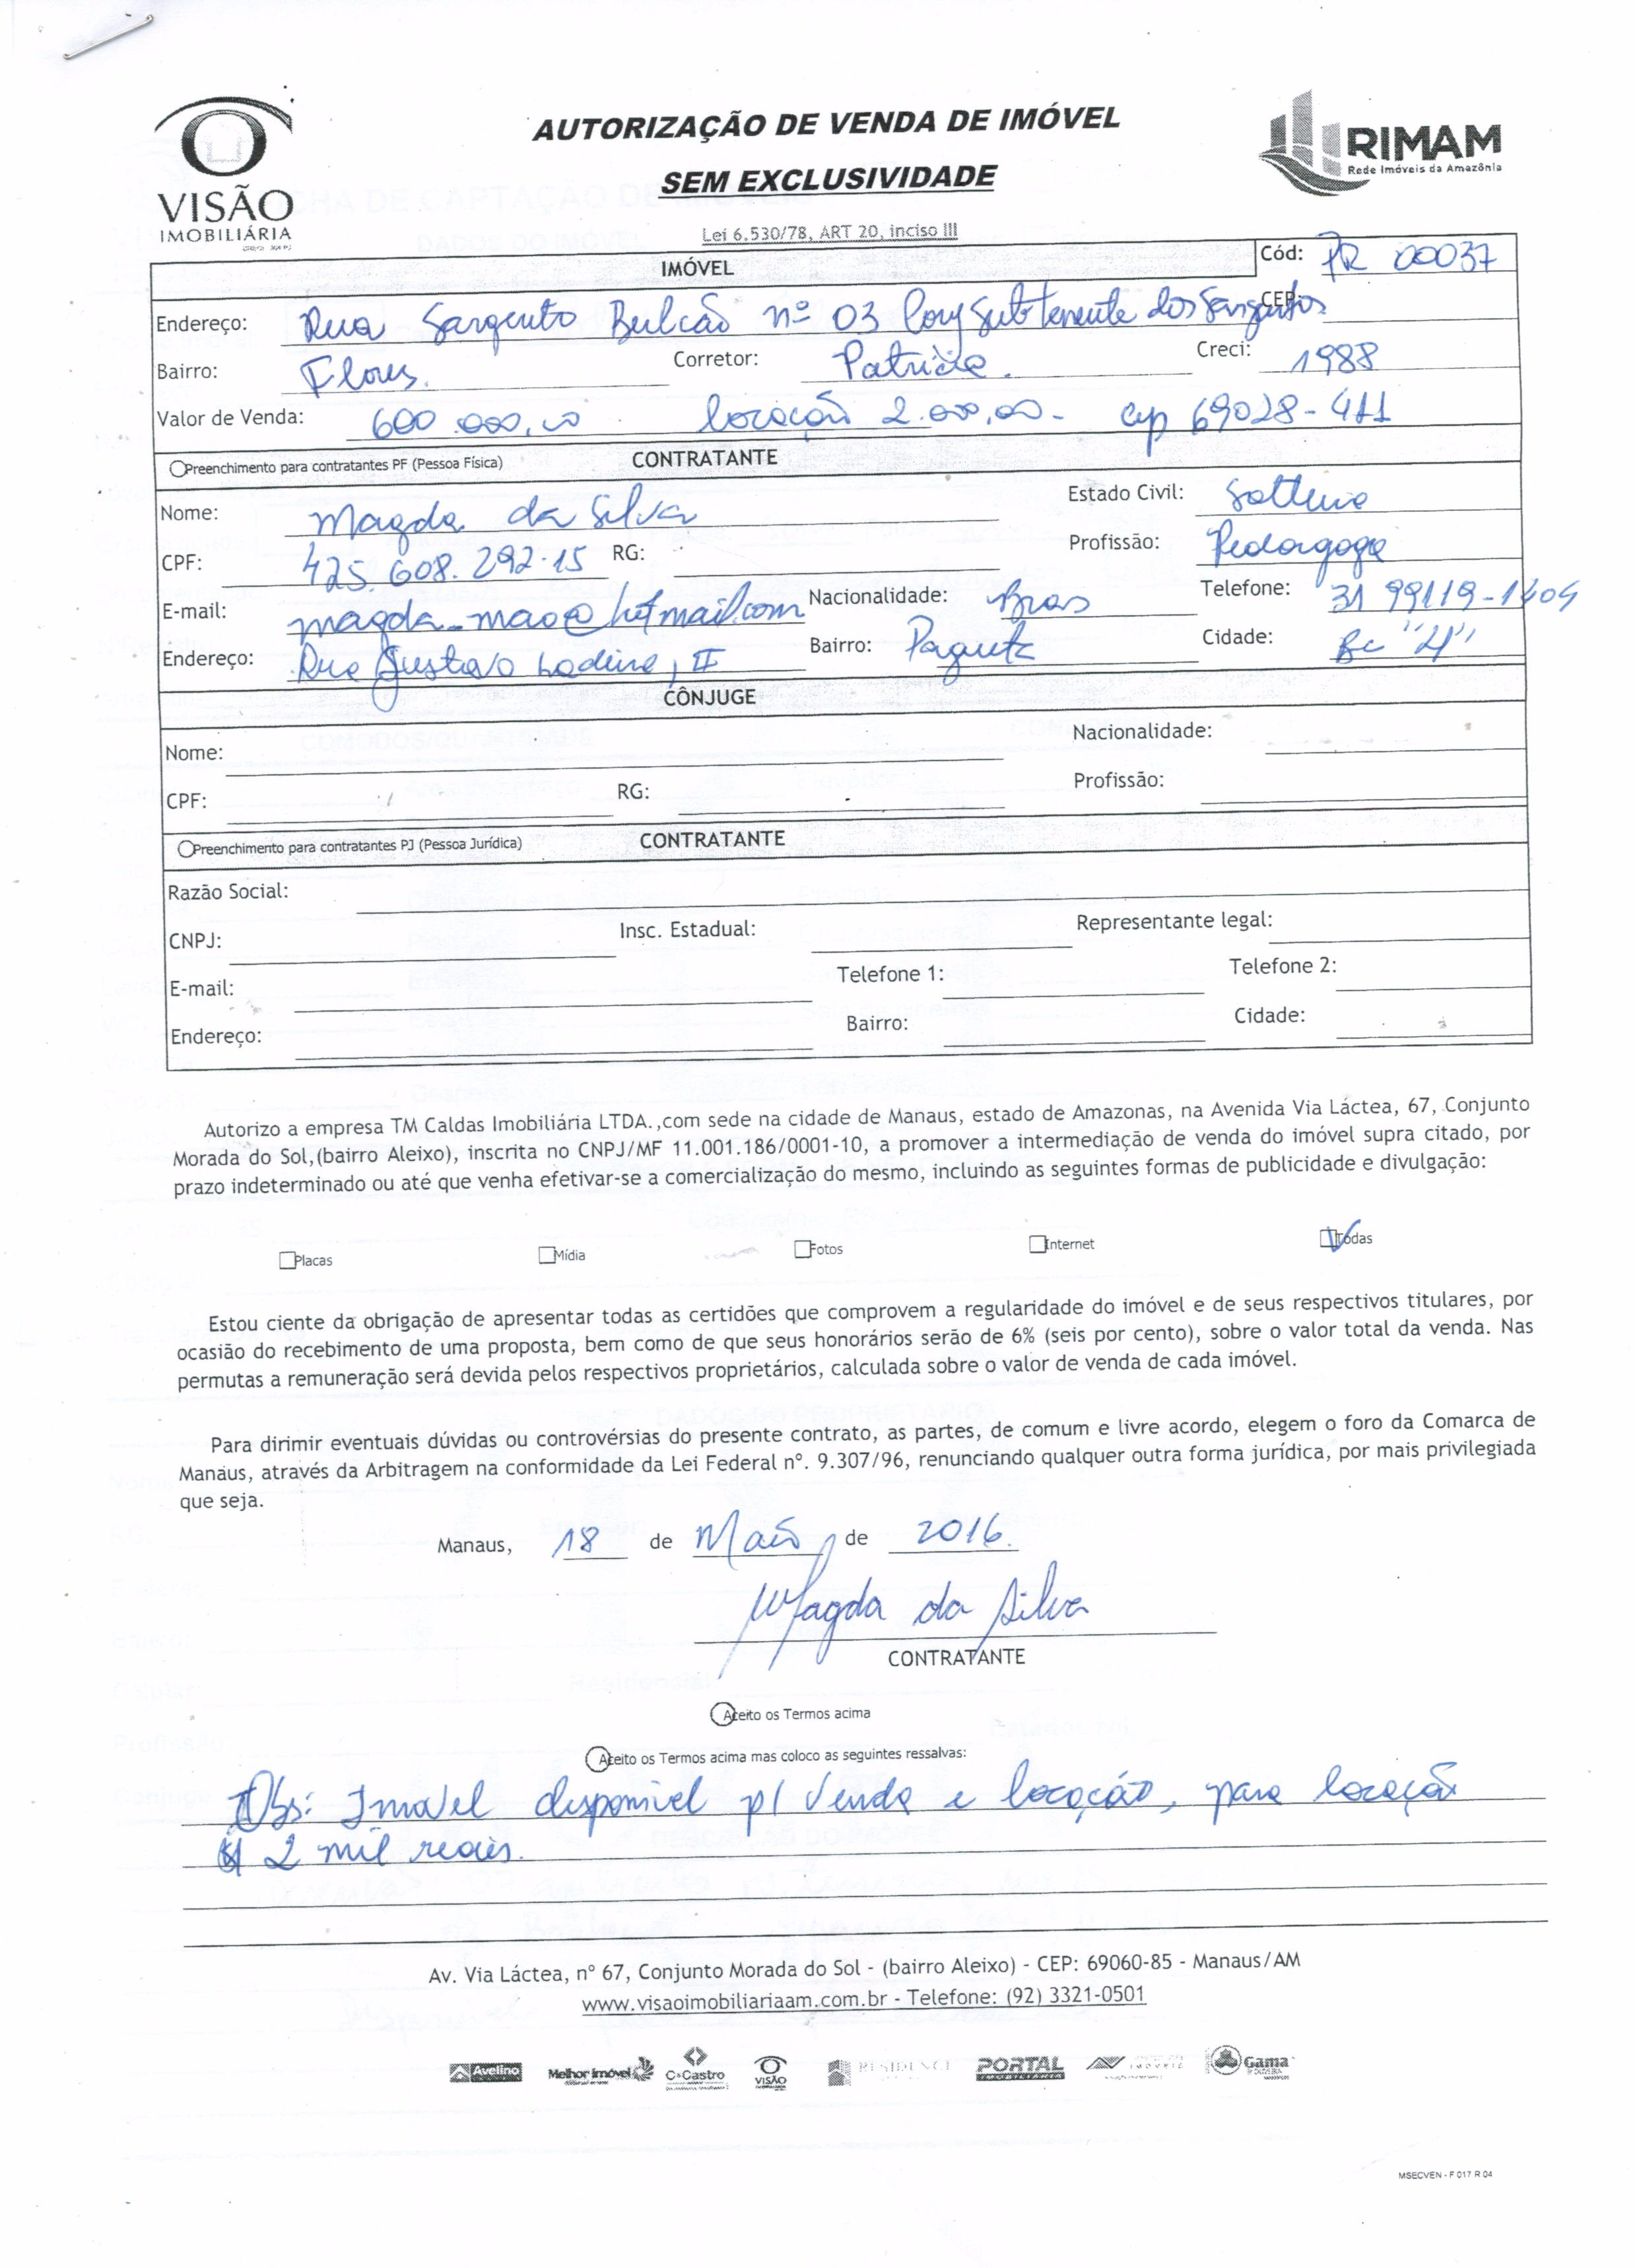 AUTORIZAÇÃO DE VENDA DE IMÓVEL
SEM EXCLUSIVIDADE
VISÃO
IMOBILIÁRIA
RIMAM
Rede Imóveis da Amazônia
Lei 6.530/78, ART 20, inciso III
IMÓVEL Cód: PR 00037
Endereço: Rua Sargento Bulcão nº 03 Conj Subtenente dos Sargentos CEP:
Bairro: Flores. Corretor: Patricia. Creci: 1988
Valor de Venda: 600.000,00 locação 2.000,00- cep 69028-411
Preenchimento para contratantes PF (Pessoa Física) CONTRATANTE
Nome: Magda da Silva Estado Civil: Solteira
CPF: 425.608.292-15 RG: Profissão: Pedagoga
E-mail: magda_mao@hotmail.com Nacionalidade: Bras Telefone: 31 99119-1404
Endereço: Rua Gustavo Ladeira, II Bairro: Paquetá Cidade:
CÔNJUGE
Nome: Nacionalidade:
CPF: RG: Profissão:
Preenchimento para contratantes PJ (Pessoa Jurídica) CONTRATANTE
Razão Social:
CNPJ: Insc. Estadual: Representante legal:
E-mail: Telefone 1: Telefone 2:
Endereço: Bairro: Cidade:
Autorizo a empresa TM Caldas Imobiliária LTDA.,com sede na cidade de Manaus, estado de Amazonas, na Avenida Via Láctea, 67, Conjunto
Morada do Sol,(bairro Aleixo), inscrita no CNPJ/MF 11.001.186/0001-10, a promover a intermediação de venda do imóvel supra citado, por
prazo indeterminado ou até que venha efetivar-se a comercialização do mesmo, incluindo as seguintes formas de publicidade e divulgação:
Placas Mídia Fotos Internet Todas
Estou ciente da obrigação de apresentar todas as certidões que comprovem a regularidade do imóvel e de seus respectivos titulares, por
ocasião do recebimento de uma proposta, bem como de que seus honorários serão de 6% (seis por cento), sobre o valor total da venda. Nas
permutas a remuneração será devida pelos respectivos proprietários, calculada sobre o valor de venda de cada imóvel.
Para dirimir eventuais dúvidas ou controvérsias do presente contrato, as partes, de comum e livre acordo, elegem o foro da Comarca de
Manaus, através da Arbitragem na conformidade da Lei Federal nº. 9.307/96, renunciando qualquer outra forma jurídica, por mais privilegiada
que seja.
Manaus, 18 de Maio de 2016.
Magda da Silva
CONTRATANTE
Aceito os Termos acima
Aceito os Termos acima mas coloco as seguintes ressalvas:
Obs: Imovel disponivel p/ Venda e locação, para locação
2 mil reais.
Av. Via Láctea, nº 67, Conjunto Morada do Sol - (bairro Aleixo) - CEP: 69060-85 - Manaus/AM
www.visaoimobiliariaam.com.br - Telefone: (92) 3321-0501
Avelino Melhor imóvel C·Castro VISÃO RESIDENCE PORTAL Gama
MSECVEN - F 017 R 04